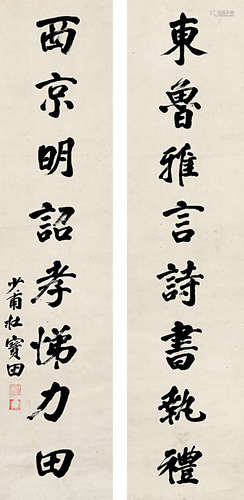 東魯雅言詩書執禮
西京明詔孝悌力田
少甫杜寶田